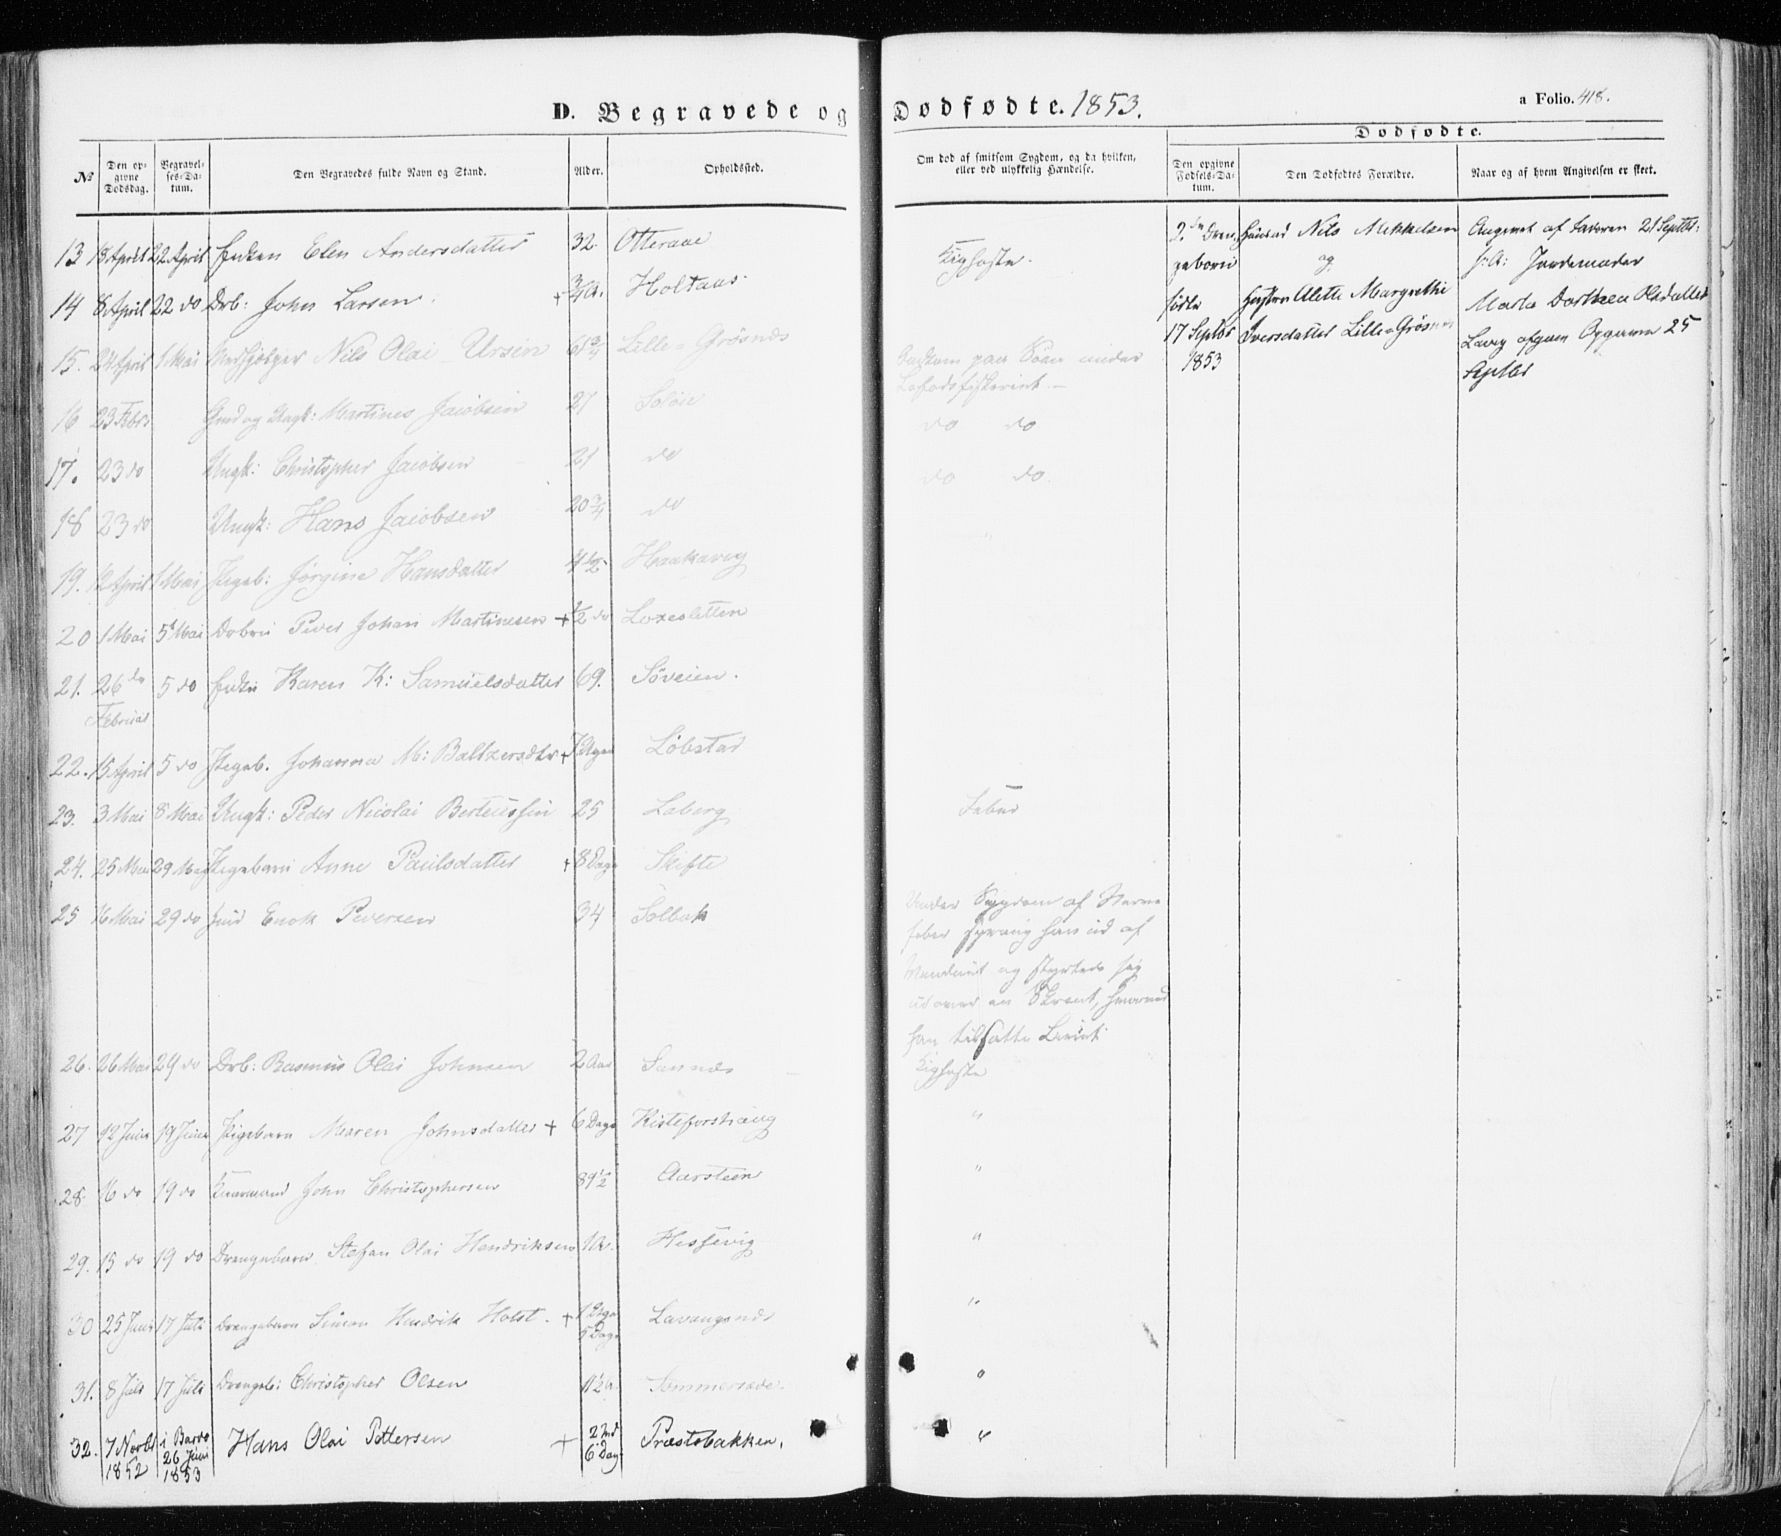 D. Begravede og Dødfødte. 1853.
a Folio. 418.
№
Den opgivne Dødsdag.
Begravelses-Datum.
Den Begravedes fulde Navn og Stand.
Alder.
Opholdssted.
Om død af smitsom Sygdom, og da hvilken, eller ved ulykkelig Hændelse.
Dødfødte.
Den opgivne Fødsels-Datum.
Den Dødfødtes Forældre.
Naar og af hvem Angivelsen er skeet.
13 18 April 22 April Elen Andersdatter 32. Otteraae
14 8 April 22 do Drb: John Larsen + 3/4 A. Holtaas Kighoste.
15. 24 April 1 Mai Nils Olai Ursin 61 3/4 Lille-Grøsnæs
16 23 Febr Ungk: Martines Jacobsen 27 Soløie
do do
17. 23 do Ungk: Christopher Jacobsen 21 do
do do.
18 23 do Ungk: Hans Jacobsen 20 3/4 do
19. 12 April 1 Mai Pigeb: Jørgine Hansdatter 4 1/2 Haakavig
20 1 Mai 5 Mai Peder Johan Martinesen + 1/2 do Loxesletten
21. 26 Februar 5 do Karen K: Samuelsdatter 69. Søveien.
22. 15 April 5 do Pigeb. Johanna M: Baltzersdtr + Løbstad
23. 3 Mai 8 Mai Ungk: Peder Nicolai Berteussen 25 Laberg Feber
24. 25 Mai 29 Mai Pigebarn Anne Paulsdatter + 8 Dage Skifte
25 16 Mai 29 do Enok Pedersen 34 Solbak
Under Sygdom af Nerve
feber sprang han ud af
Vinduet og styrtede sig
ud over en Skrent, hvorved
han tilsatte Livet.
26. 26 Mai 29 do Drb: Rasmus Olai Johnsen 2 Aar Sannæs Kighoste
27 12 Juni 19 Juni Pigebarn Maren Johnsdatter + 6 Dage Kisteforshaug "
28. 16 do 19 do John Christophersen 89 1/2 Aarsteen "
29. 15 do 19 do Drengebarn Stefan Olai Hendriksen 1 A. Hessevig "
30 25 Juni 17 Juli Drengebarn Simon Hendrik Holst. + 1 Uge 5 Dage Lavangsnæs "
31. 8 Juli 17 Juli Drengeb: Christopher Olsen 1 1/2 A. Sommersæde. "
32. 7 Novbr 1852 i Bardo 26 Juni 1853 Hans Olai Pettersen + 2 Md 6 Dag Præstebakken. "
2
fødte
17 Septbr
1853
Nils Mikkelsen
og
Alette Margrethe
Iversdatter Lille-Grøsnæs
Angivet af Faderen 21 Septbr:
Jordemoder
Marta Dorthea Olsdatter
Lavg 25
Septbr